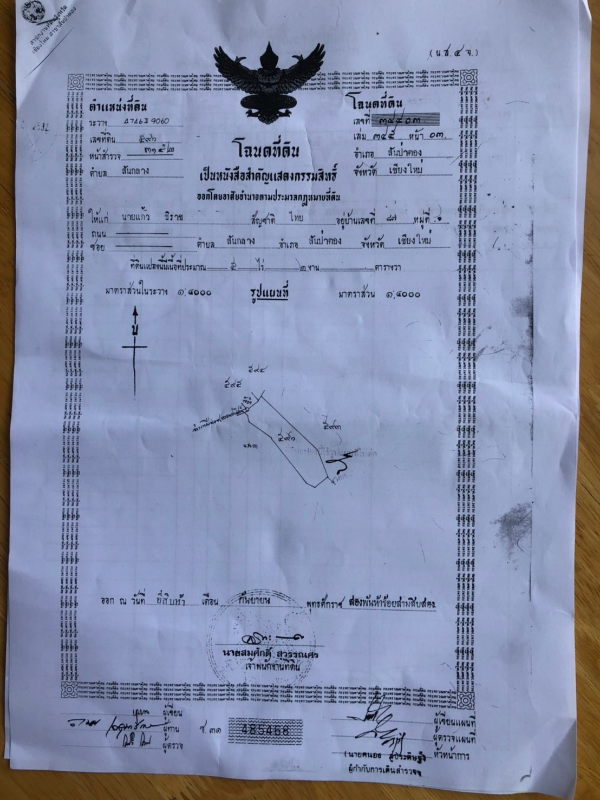 (น.ส.๔ จ.)
ตำแหน่งที่ดิน
ระวาง 4746 I 9060
เลขที่ดิน ๕๙๖
หน้าสำรวจ ๓๑๕๒
ตำบล สันกลาง
โฉนดที่ดิน
เลขที่ ๓๔๔๐๓
เล่ม ๓๔๕ หน้า ๐๓
อำเภอ สันป่าตอง
จังหวัด เชียงใหม่
โฉนดที่ดิน
เป็นหนังสือสำคัญแสดงกรรมสิทธิ์
ออกโดยอาศัยอำนาจตามประมวลกฎหมายที่ดิน
ให้แก่ นายแก้ว สัญชาติ ไทย อยู่บ้านเลขที่ หมู่ที่
ถนน
ซอย ตำบล สันกลาง อำเภอ สันป่าตอง จังหวัด เชียงใหม่
ที่ดินแปลงนี้มีเนื้อที่ประมาณ ๕ ไร่ ๒ งาน ตารางวา
มาตราส่วนในระวาง ๑:๔๐๐๐ รูปแผนที่ มาตราส่วน ๑:๔๐๐๐
น
๕๙๔
๕๙๕
๕๙๓
๕๙๖
ออก ณ วันที่ ยี่สิบเก้า เดือน กันยายน พุทธศักราช สองพันห้าร้อยสามสิบสอง
นายสมศักดิ์ สุวรรณศร
เจ้าพนักงานที่ดิน
ผู้เขียน
ผู้ทาน
ผู้ตรวจ
485468
ผู้เขียนแผนที่
ผู้ตรวจแผนที่
หัวหน้าการ
ผู้กำกับการเดินสำรวจ